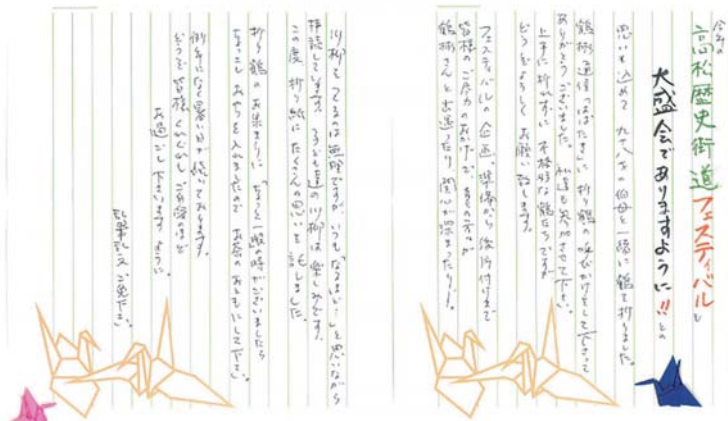 今年の
高松歴史街道フェスティバルも
大盛会でありますように!!との
思いも込めて 九十八才の伯母と一緒に鶴を折りました。
鶴彬通信「はばたき」に折り鶴の呼びかけをして下さって
ありがとうございました。私達も参加させて下さい。
上手に折れずに不格好な鶴たちですが
どうぞよろしくお願い致します。
フェスティバルの企画、準備から後片付けまで
皆様のご尽力のおかげで、多くの方々が
鶴彬さんと出逢ったり関心が深まったり…。
川柳を作るのは無理ですが、いつも「なるほど…」と思いながら
拝読しています。子ども達の川柳は楽しみです。
この度 折り紙にたくさんの思いを託しました。
折り鶴のお集まりに「ちょっと一服」の時がございましたら
ちょこっとおやつを入れましたので お茶のおともにして下さい。
例年になく暑い日が続いております。
どうぞ皆様くれぐれもご自愛のほど
お過ごし下さいますように。
乱筆乱文ご免ください。